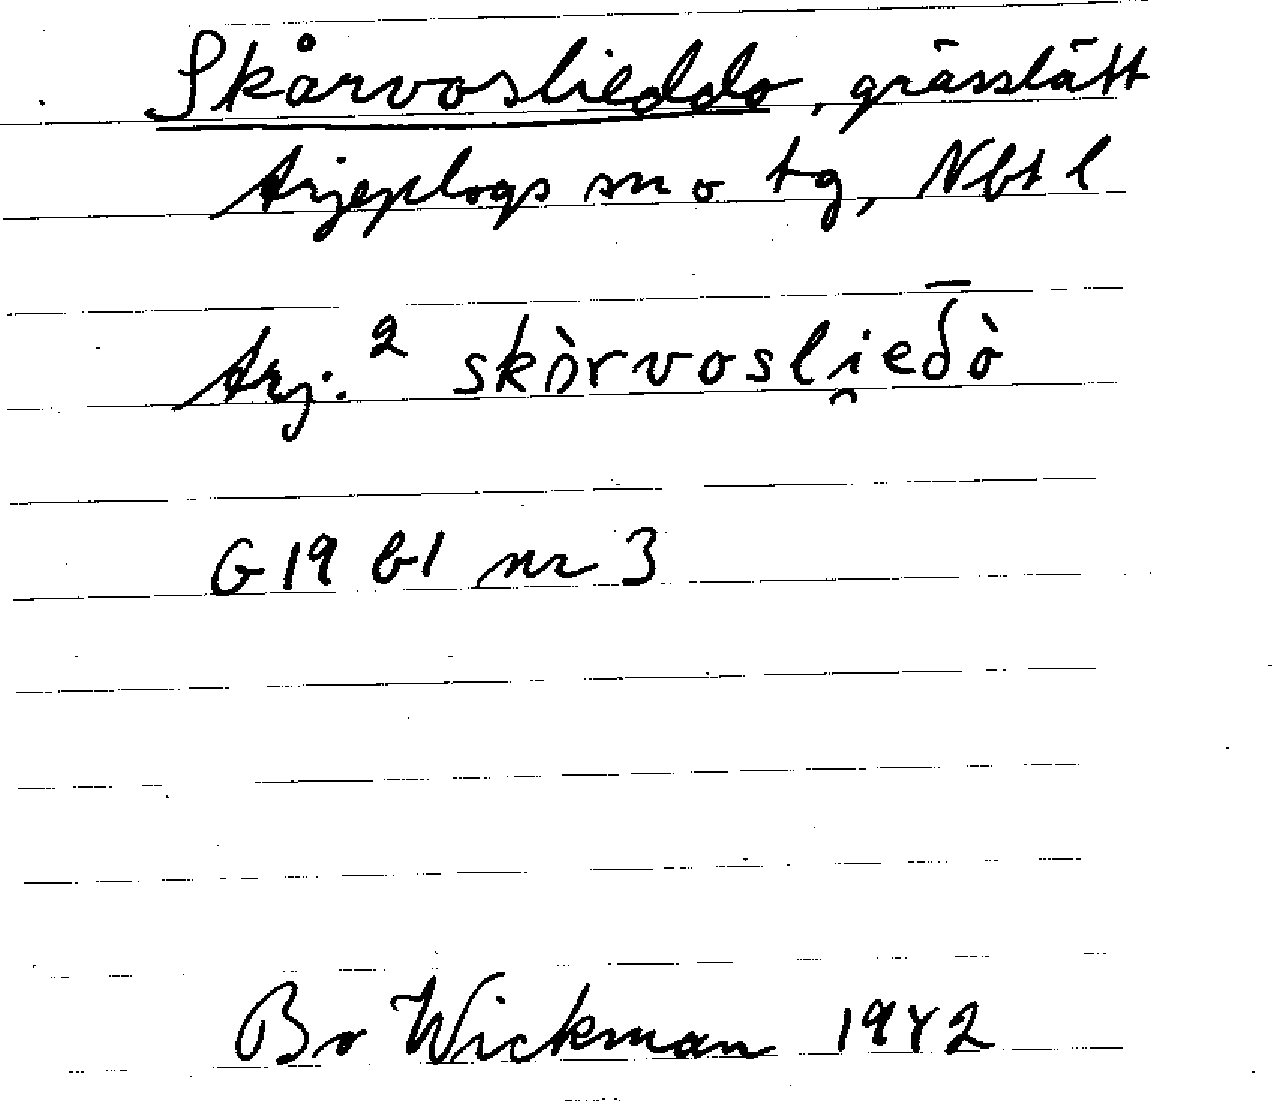 Skårvoslieddo, grässlått
Arjeplogs sn o tg, Nbt l
Arj.² skòrvosli̯eδ̄ò
G19 b1 nr 3
Bo Wickman 1942